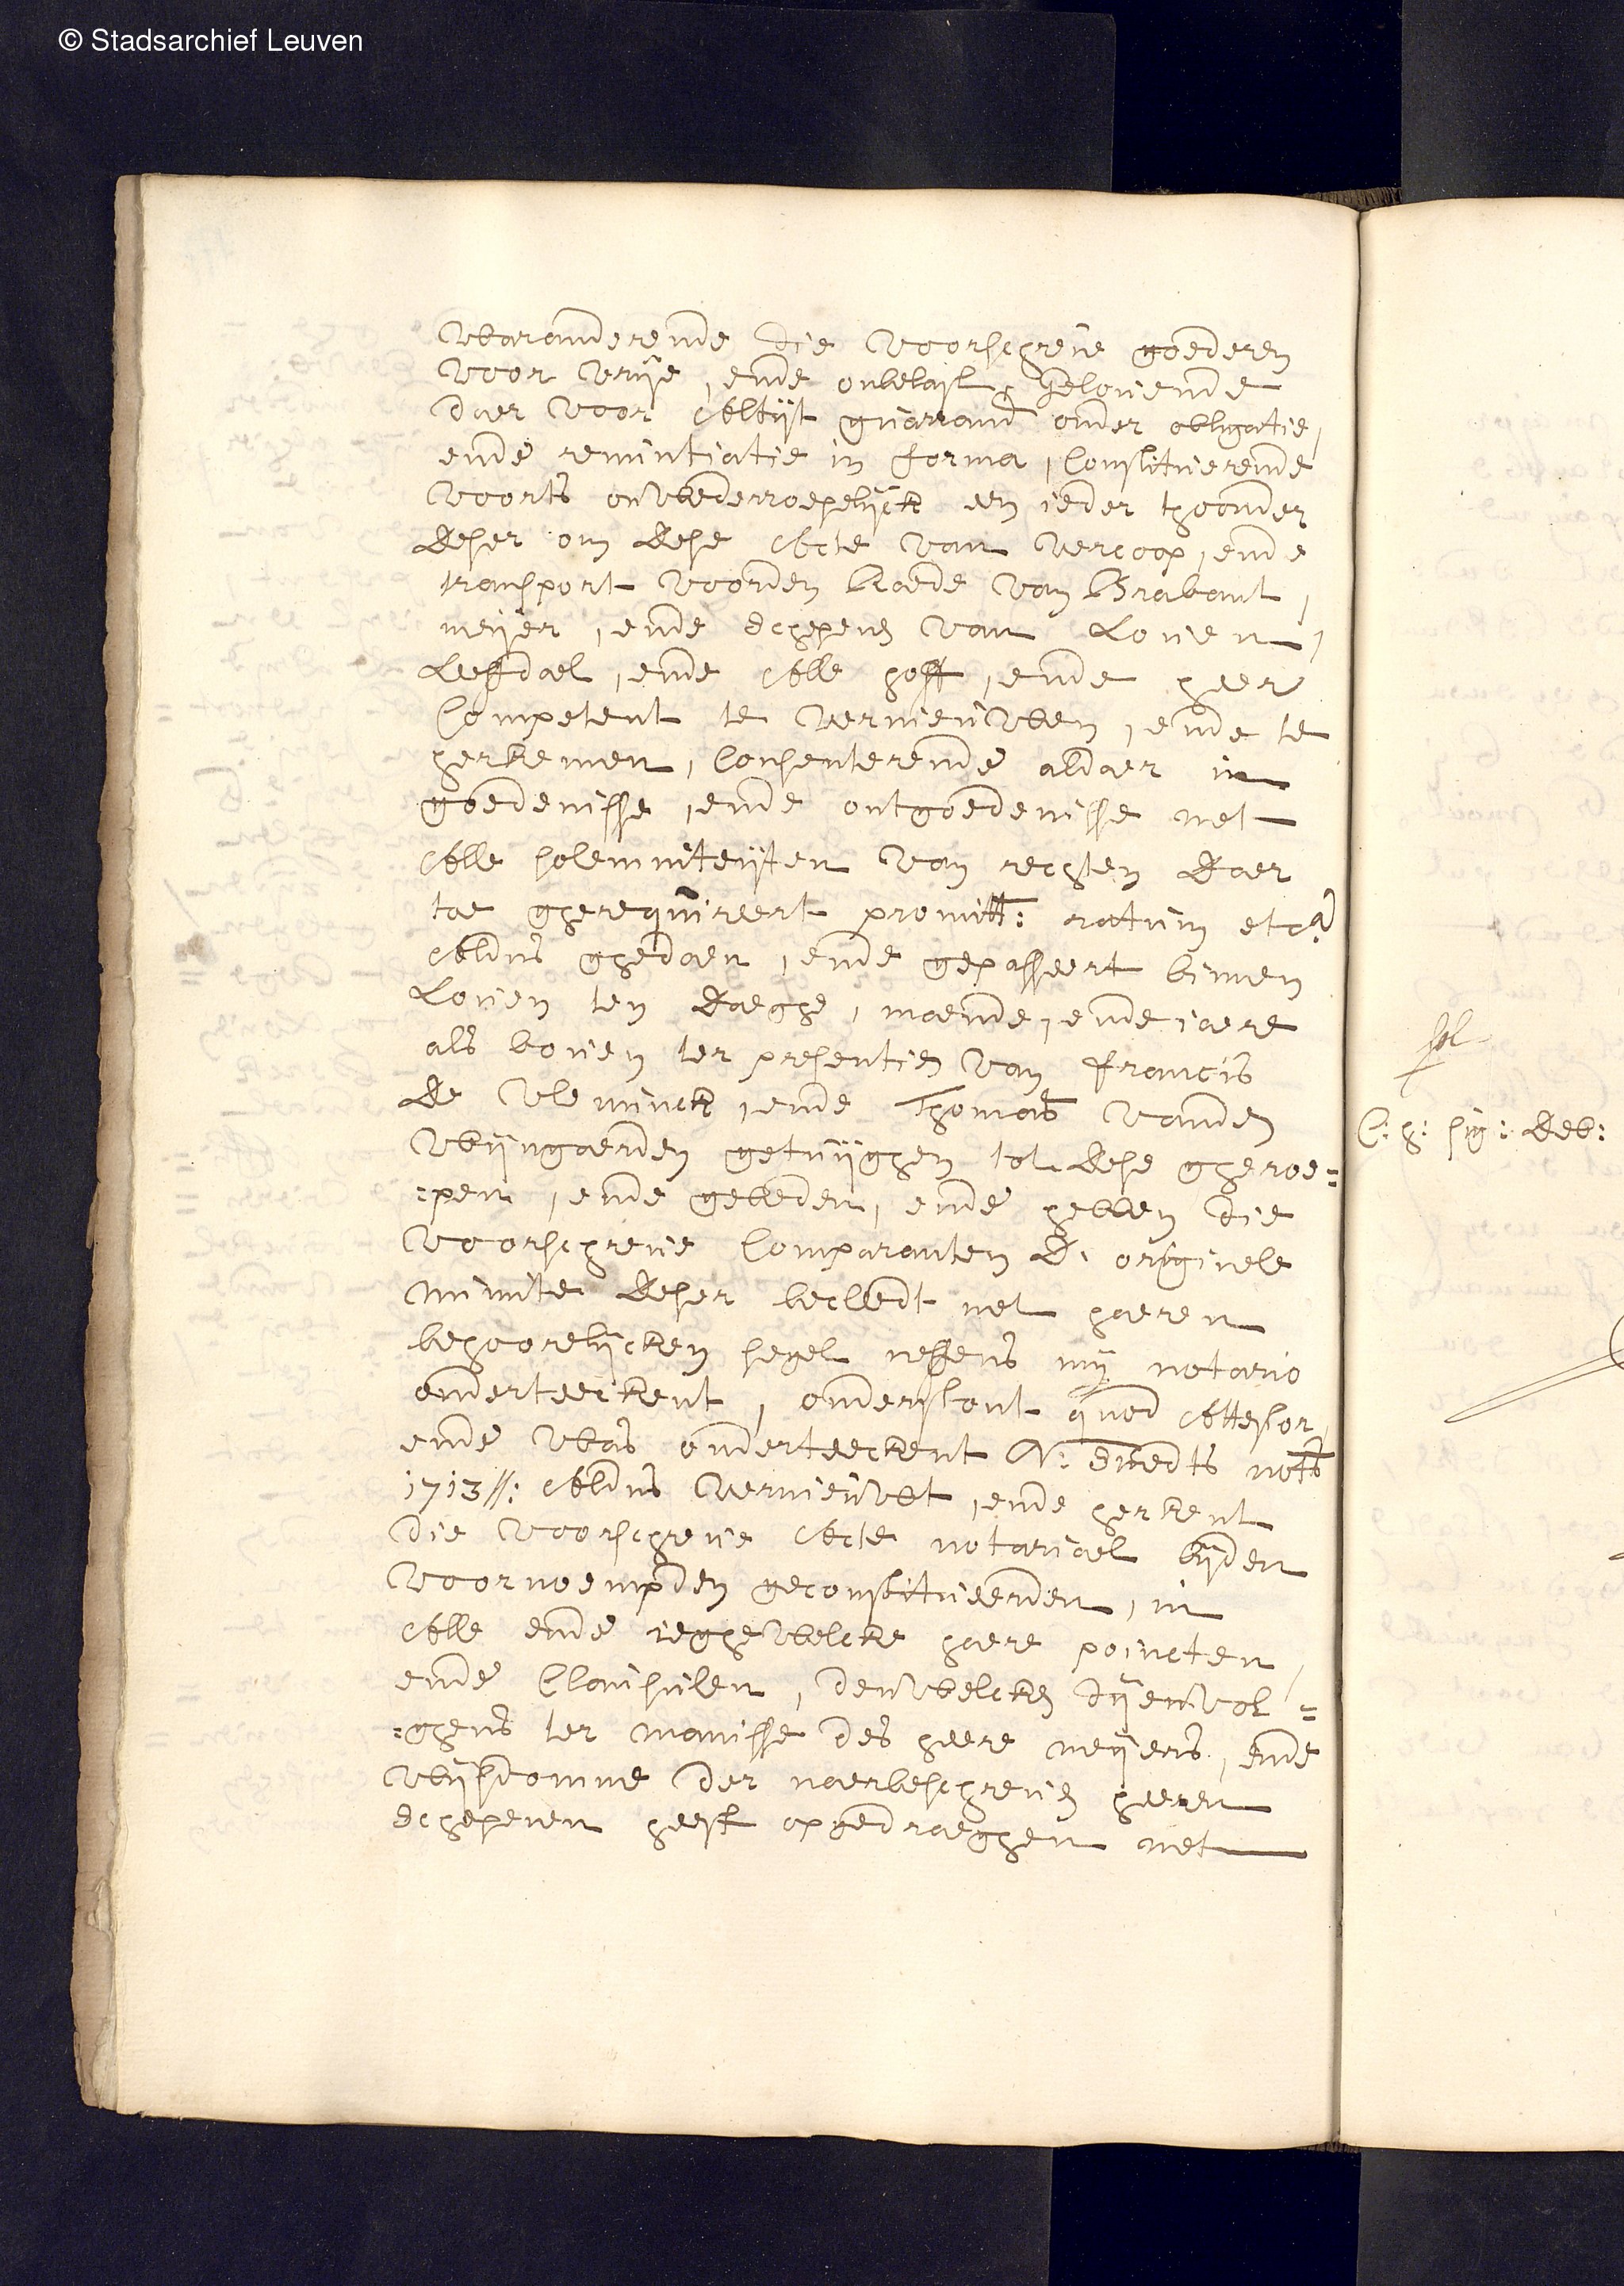 © Stadsarchief Leuven
Waranderende die voorschreve goederen
voor vrije, ende onbelast, Gelovende
daer voor Altijt guarrand onder obligatie,
ende renuntiatie in forma, Constituerende
voorts onwederroepelijck een ieder thoonder
deser om dese Acte van vercoop, ende
transport voorden Raede van Brabant,
meijer, ende Schepenen van Loven,
Leefdael, ende Alle hoff, ende heer
Competent te vernieuwen, ende te
herkennen, Consenterende aldaer in
goedenisse, ende ontgoedenisse met
Alle solemniteijten van rechten daer
toe gherequireert promitt: ratum etca
Aldus ghedaen, ende gepasseert binnen
Loven ten daeghe, maende, ende iaere
als boven ter presentien van francis
de Vleminck, ende Thomas vanden
Wijngaerden getuijghen tot dese gheroe=
=pen, ende gebeden, ende hebben die
voorschreve Comparanten d' originele
minute deser becleedt met haeren
behoorelijcken segel neffens mij notario
onderteeckent, onderstont quod Attestor,
ende Was onderteeckent nots
1713//: Aldus vernieuwt, ende herkent
die voorschreve Acte notariael bijden
voornoempden geconstitueerden, in
Alle ende ieghewelcke haere poincten,
ende Clausulen, denwelcken dijenvol=
=ghens ter manisse des heere meijers, ende
Wijsdomme der naerbeschreven heeren
Schepenen heeft opgedraeghen met
sol
C: h: sig: deb: